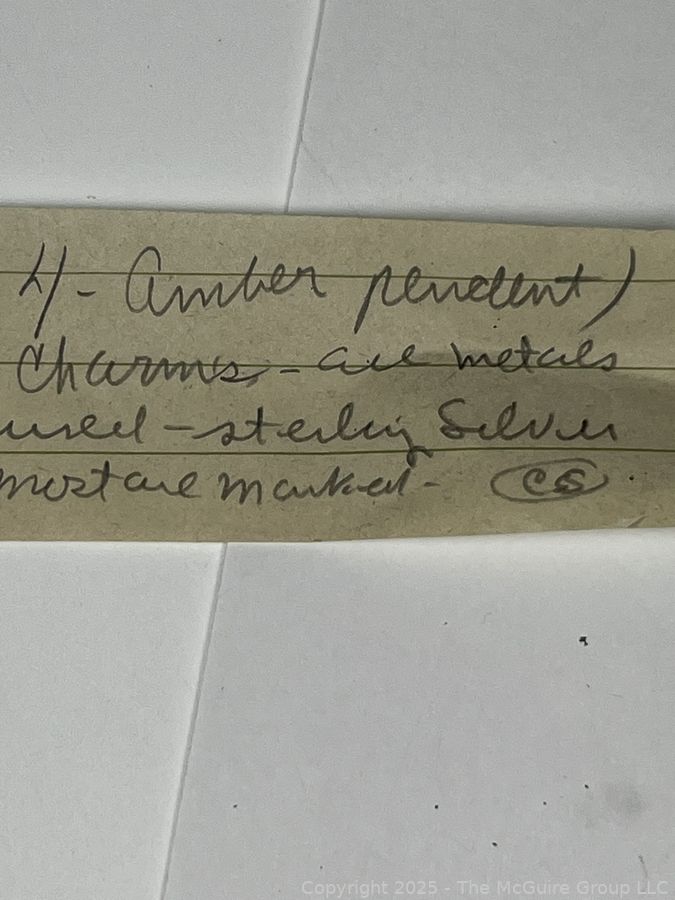 4 - Amber pendent)
Charms - all metals
used - sterling Silver
most are marked - CS .
Copyright 2025 - The McGuire Group LLC